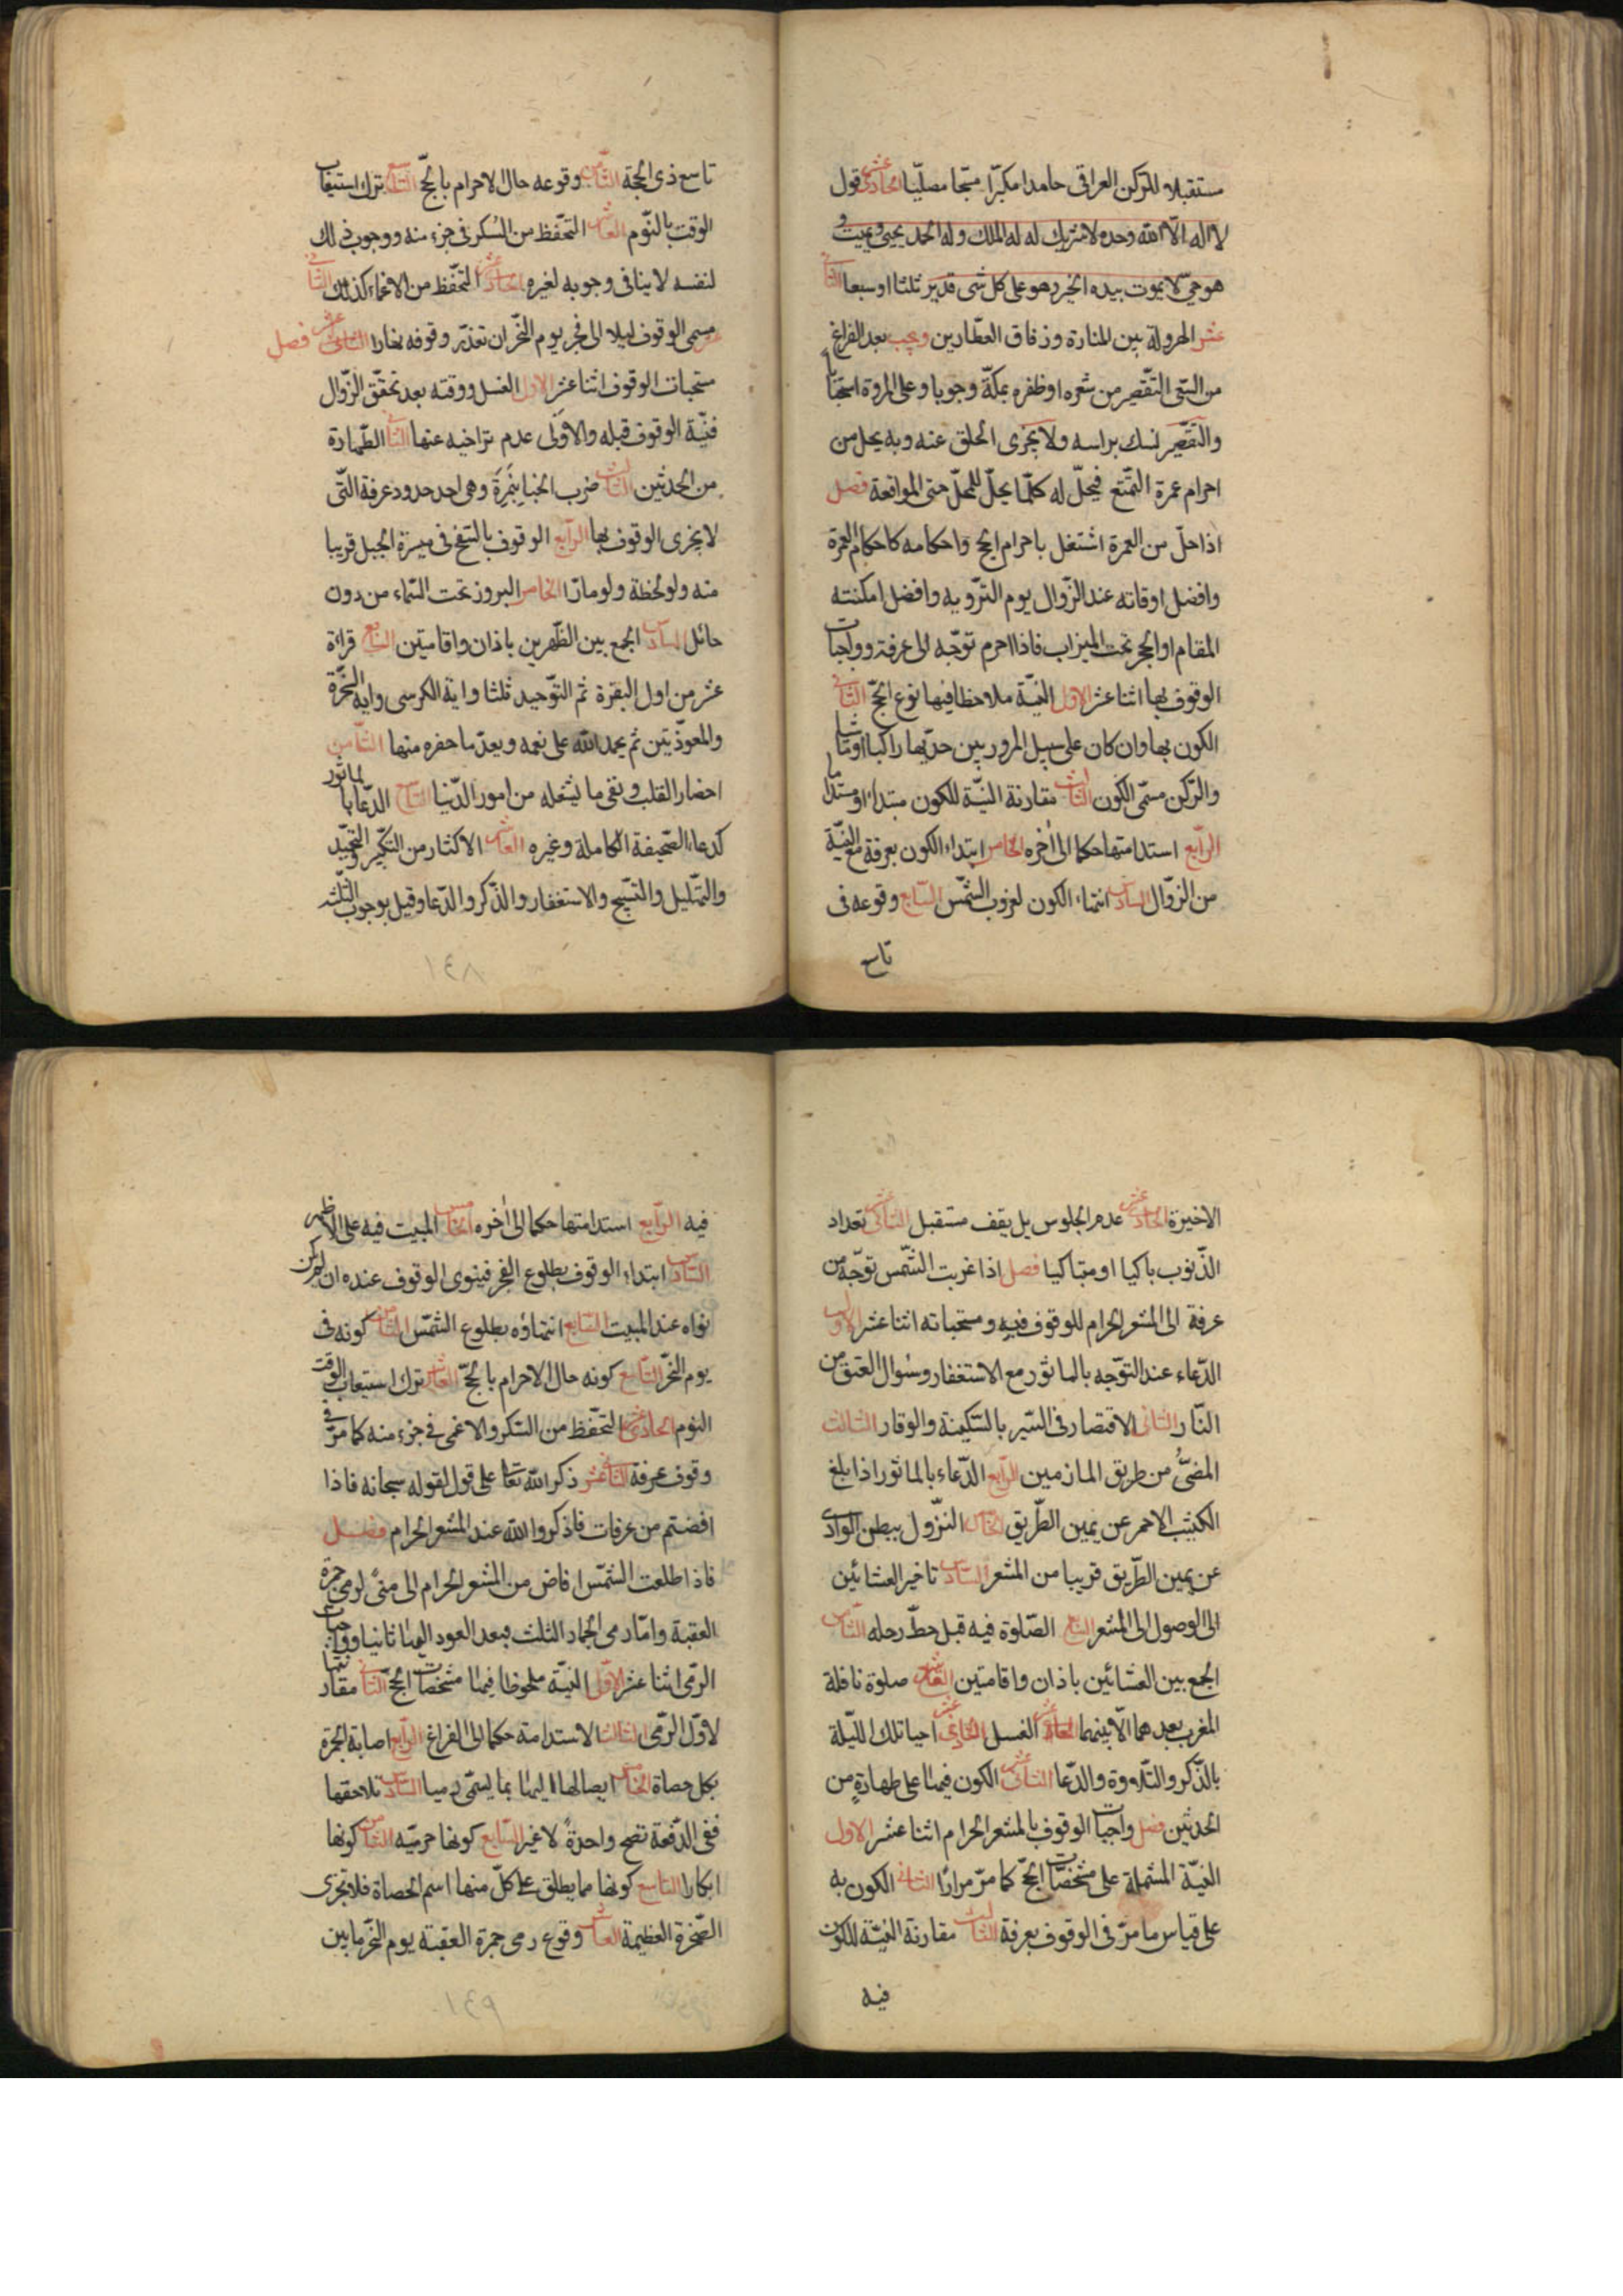 مستقبلا للركن العراقى حامدا مكبّرا مسبّحا مصلّيا الحادى عشر قول
لا اله الّا الله وحده لا شريك له له الملك وله الحمد يحيى ويميت و
هو حىّ لا يموت بيده الخير وهو على كل شى قدير ثلثا او سبعا الثانى
عشر الهرولة بين المنارة وزقاق العطّارين ويجب بعد الفراغ
من السّعى التّقصير من شعره او ظفره بمكّة وجوبا وعلى المروة استحبابا
والتقصير نسك براسه ولا يجزى الحلق عنه وبه يحل من
احرام عمرة التمتع فيحلّ له كلّما يحلّ للمحلّ حتى المواقعة فصل
اذا حلّ من العمرة اشتغل باحرام الحج واحكامه كاحكام العمرة
وافضل اوقاته عند الزّوال يوم التّروية وافضل امكنته
المقام او الحجر تحت الميزاب فاذا احرم توجّه الى عرفة وواجبات
الوقوف بها اثنا عشر الاول النيّة ملاحظا فيها نوع الحجّ الثانى
الكون بها وان كان على سبيل المرور بين حدّيها راكبا او ماشيا
والرّكن مسمّى الكون الثالث مقارنة النيّة للكون مبتدا او مستدا
الرّابع استدامتها حكما الى اخره الخامس ابتداء الكون بعرفة مع النيّة
من الزّوال السادس انتهاء الكون لغروب الشمّس السّابع وقوعه فى
تاسع
تاسع ذى الحجة الثامن وقوعه حال الاحرام بالحجّ التاسع ترك استيعاب
الوقت بالنّوم العاشر التحفّظ من السُكر فى جزء منه ووجوب ذلك
لنفسه لا ينافى وجوبه لغيره الحادى عشر التّحفّظ من الاغماء كذلك الثانى
عشر مسمى الوقوف ليلا الى فجر يوم النّحر ان تعذّر وقوفه نهارا فصل
مستحبات الوقوف اثنا عشر الاول الغسل ووقته بعد تحقّق الزّوال
فنيّة الوقوف قبله والاولى عدم تراخيه عنها الثانى الطّهارة
من الحدثين الثالث ضرب الخباء بنَمِرَة وهى احد حدود عرفة التّى
لا يجزى الوقوف بها الرّابع الوقوف بالسّفح فى ميسرة الجبل قريبا
منه ولو لحظة ولو مارّا الخامس البروز تحت السّماء من دون
حائل السادس الجمع بين الظّهرين باذان واقامتين السّابع قراءة
عشر من اول البقرة ثم التوّحيد ثلثا واية الكرسى واية السّخرة
والمعوذّتين ثم يحمد الله على نعمه ويعدّ ما حضره منها الثّامن
احضار القلب ونفى ما يشغله من امور الدّنيا التّاسع الدّعاء بالماثور
كدعاء الصّحيفة الكاملة وغيره العاشر الاكثار من التكبّير والتحميد
والتهّليل والتسّبيح والاستغفار والذّكر والدّعا وقيل بوجوب الثلثة
١٤٨
الاخيرة الحادى عشر عدم الجلوس بل يقف مستقبل الثانى عشر تعداد
الذّنوب باكيا او متباكيا فصل اذا غربت الشّمس توجّه من
عرفة الى المشعر الحرام للوقوف فيه ومستحباته اثنا عشر الاول
الدّعاء عند التوّجه بالماثور مع الاستغفار وسؤال العتق من
النّار الثانى الاقتصار فى السّير بالسّكينة والوقار الثالث
المضىّ من طريق المازمين الرّابع الدّعاء بالماثور اذا بلغ
الكثيب الاحمر عن يمين الطّريق الخامس النزّول ببطن الوادى
عن يمين الطّريق قريبا من المشعر السّادس تاخير العشائين
الى الوصول الى المشعر السّابع الصّلوة فيه قبل حطّ رحله الثّامن
الجمع بين العشائين باذان واقامتين التّاسع صلوة نافلة
المغرب بعدهما لا بينهما العاشر الغسل الحادى عشر احيا تلك اللّيلة
بالذّكر والتّلاوة والدّعا الثانى عشر الكون فيها على طهارةٍ من
الحدثين فصل واجبات الوقوف بالمشعر الحرام اثنا عشر الاول
النيّة المشتملة على مشخصّات الحجّ كما مرّ مرارًا الثّانى الكون به
على قياس ما مرّ فى الوقوف بعرفة الثالث مقارنة النيّة للكون
فيه
فيه الرّابع استدامتها حكما الى اخره الخامس المبيت فيه على الاظهر
السّادس ابتداء الوقوف بطلوع الفجر فينوى الوقوف عنده ان لم يكن
نواه عند المبيت السّابع انتهاؤه بطلوع الشمّس الثامن كونه فى
يوم النحّر التّاسع كونه حال الاحرام بالحجّ العاشر ترك استيعاب الوقت
النوم الحادى عشر التحفّظ من السّكر والاغمى فى جزء منه كما مرّ فى
وقوف عرفة الثانى عشر ذكر الله تعالى على قول لقوله سبحانه فاذا
افضتم من عرفات فاذكروا الله عند المشعر الحرام فصل
فاذا طلعت الشمّس افاض من المشعر الحرام الى منىً لرمى جمرة
العقبة وامّا رمى الجمار الثلث فبعد العود اليها ثانيا وواجبات
الرّمى اثنا عشر الاوّل النيّة ملحوظا فيها مشخصّات الحجّ الثّانى مقارنتها
لاوّل الرّمى الثالث الاستدامة حكما الى الفراغ الرّابع اصابة الجمرة
بكل حصاة الخامس ايصالها اليها بما يسمّى رميا السّادس تلاحقها
ففى الدّفعة تصح واحدةً لا غير السّابع كونها حرميّه الثّامن كونها
ابكارا التاسع كونها مما يطلق على كلّ منها اسم الحصاة فلا تجزى
الصّخرة العظيمة العاشر وقوع رمى جمرة العقبة يوم النّحر ما بين
١٤٩